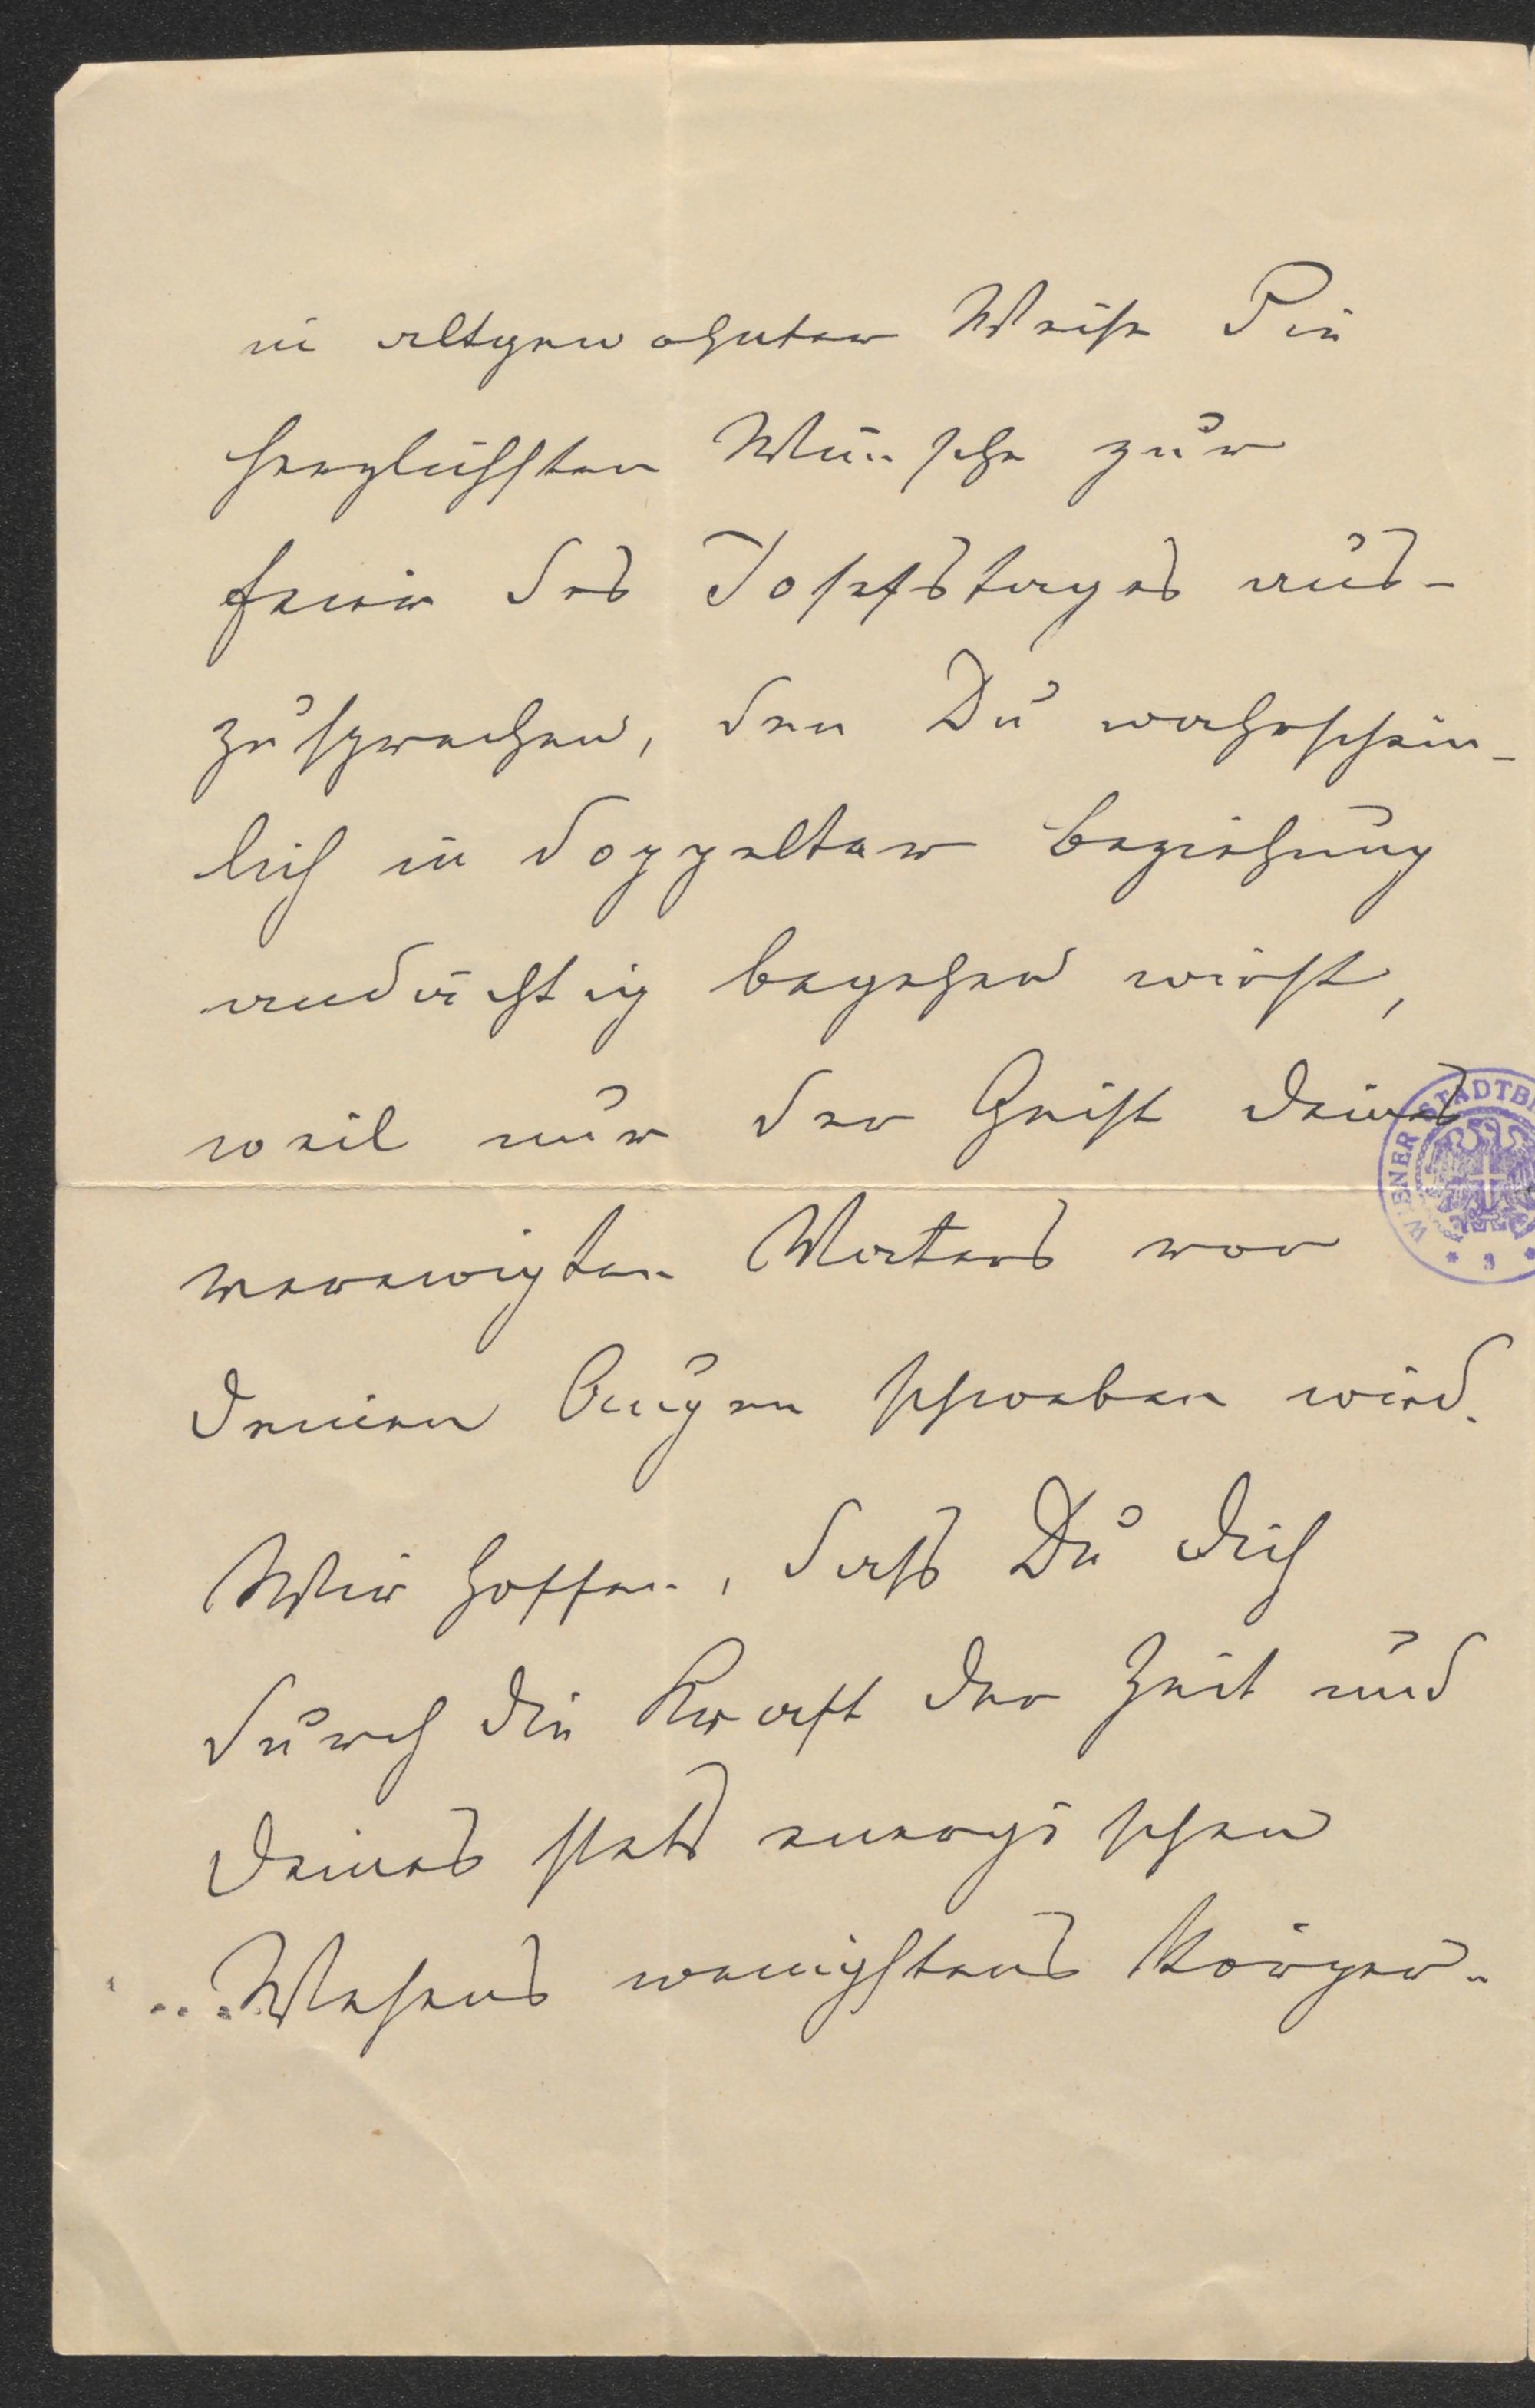 in altgewohnter Weise die
herzlichsten Wünsche zur
Feier des Josefstages aus-
zusprechen, den Du wahrschein-
lich in doppelter Beziehung
andächtig begehen wirst,
weil nur der Geist deines
verewigten Vaters vor
deinen Augen schweben wird.
Wir hoffen, dass Du dich
durch die Kraft der Zeit und
deines stets energischen
Wesens wenigstens körper-
WIENER STADTB